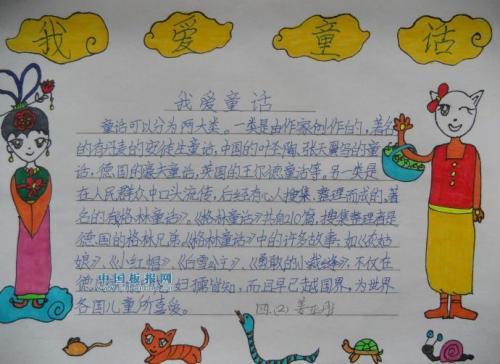 我 爱 童 话
我爱童话
童话可以分为两大类。一类是由作家创作的,著名
的有丹麦的安徒生童话,中国的叶圣陶、张天翼写的童
话,德国的豪夫童话,英国的王尔德童话等,另一类是
在人民群众中口头流传,后经有心人搜集、整理而成的,著
名的有《格林童话》。《格林童话》共有210篇,搜集整理者是
德国的格林兄弟。《格林童话》中的许多故事,如《灰姑
娘》、《小红帽》、《白雪公主》、《勇敢的小裁缝》,不仅在
中国板报网
德 妇孺皆知,而且早已越国界,为世界
各国儿童所喜爱。
四.(2)